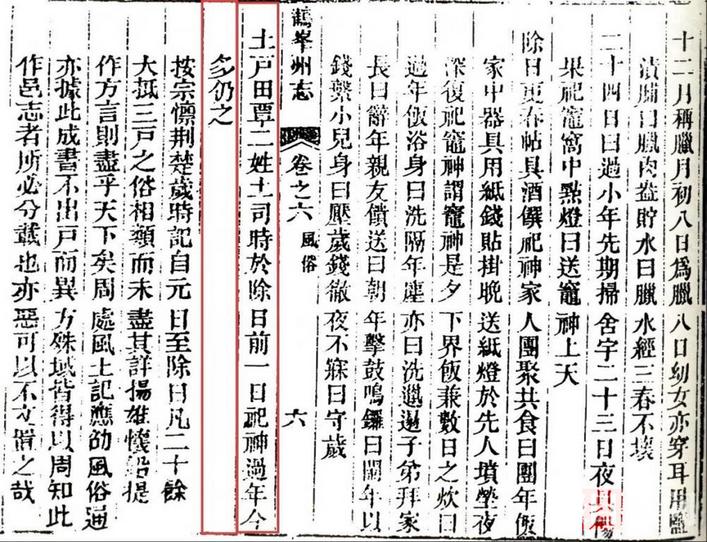 十二月稱臘月初八日為臘八日幼女亦穿耳用鹽
漬脯曰臘肉盎貯水曰臘水經三春不壞
二十四日曰過小年先期掃舍宇二十三日夜具餳
果祀竈窩中㸃燈曰送竈神上天
除日更春帖具酒饌祀神家人團聚共食曰團年飯
家中器具用紙錢貼掛晚送紙燈於先人墳塋夜
深復祀竈神謂竈神是夕下界飯兼數日之炊曰
過年飯浴身曰洗隔年塵亦曰洗邋遢子弟拜家
長曰辭年親友饋送曰朝年擊鼓鳴鑼曰鬧年以
錢繫小兒身曰壓歲錢徹夜不寐曰守歲
鶴峯州志 卷之六 風俗 六
土戸田覃二姓土司時於除日前一日祀神過年今
多仍之
按宗懍荆楚歲時記自元日至除日凡二十餘
大抵三戸之俗相類而未盡其詳揚雄懷鉛提
作方言則盡乎天下矣周處風土記應劭風俗通
亦據此成書不出戸而異方殊域皆得以周知此
作邑志者所必分載也亦惡可以不文偕之哉